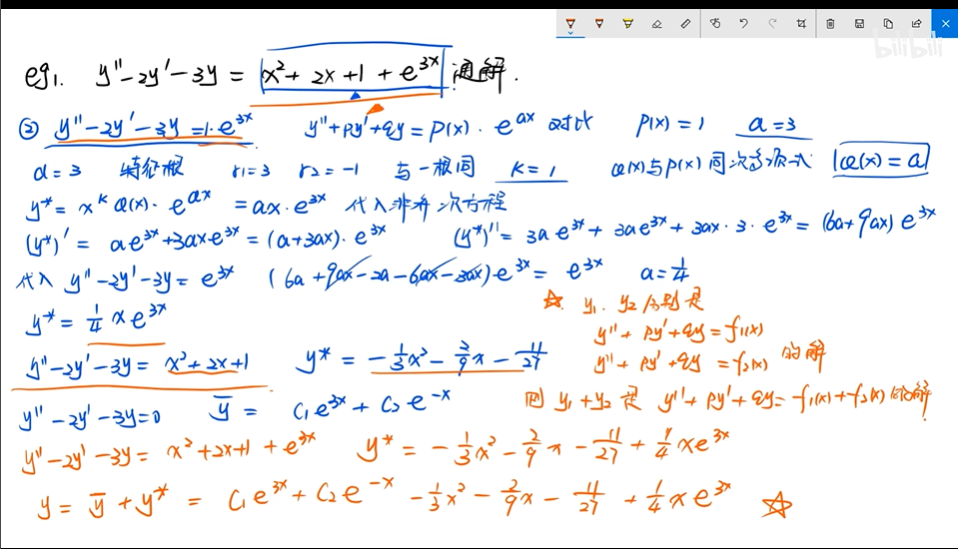 bilibili
eg1. y''-2y'-3y = x²+2x+1+e^{3x} 通解.
② y''-2y'-3y=1·e^{3x} y''+py'+qy=P(x)·e^{ax} 对比 P(x)=1 a=3
a=3 特征根 r1=3 r2=-1 与一根同 k=1 Q(x)与P(x)同次多项式 Q(x)=a
y*=x^k Q(x)·e^{ax} =ax·e^{3x} 代入非齐次方程
(y*)'=ae^{3x}+3axe^{3x}=(a+3ax)·e^{3x} (y*)''=3ae^{3x}+3ae^{3x}+3ax·3·e^{3x}=(6a+9ax)e^{3x}
代入 y''-2y'-3y=e^{3x} (6a+9ax-2a-6ax-3ax)e^{3x}=e^{3x} a=1/4
y*=1/4 xe^{3x}
☆. y1. y2分别是
y''+py'+qy=f1(x)
y''+py'+qy=f2(x) 的解
则 y1+y2 是 y''+py'+qy=f1(x)+f2(x)的解
y''-2y'-3y=x²+2x+1 y*=-1/3x²-2/9x-11/27
y''-2y'-3y=0 ȳ=C1e^{3x}+C2e^{-x}
y''-2y'-3y=x²+2x+1+e^{3x} y*=-1/3x²-2/9x-11/27+1/4xe^{3x}
y=ȳ+y*=C1e^{3x}+C2e^{-x}-1/3x²-2/9x-11/27+1/4xe^{3x} ☆